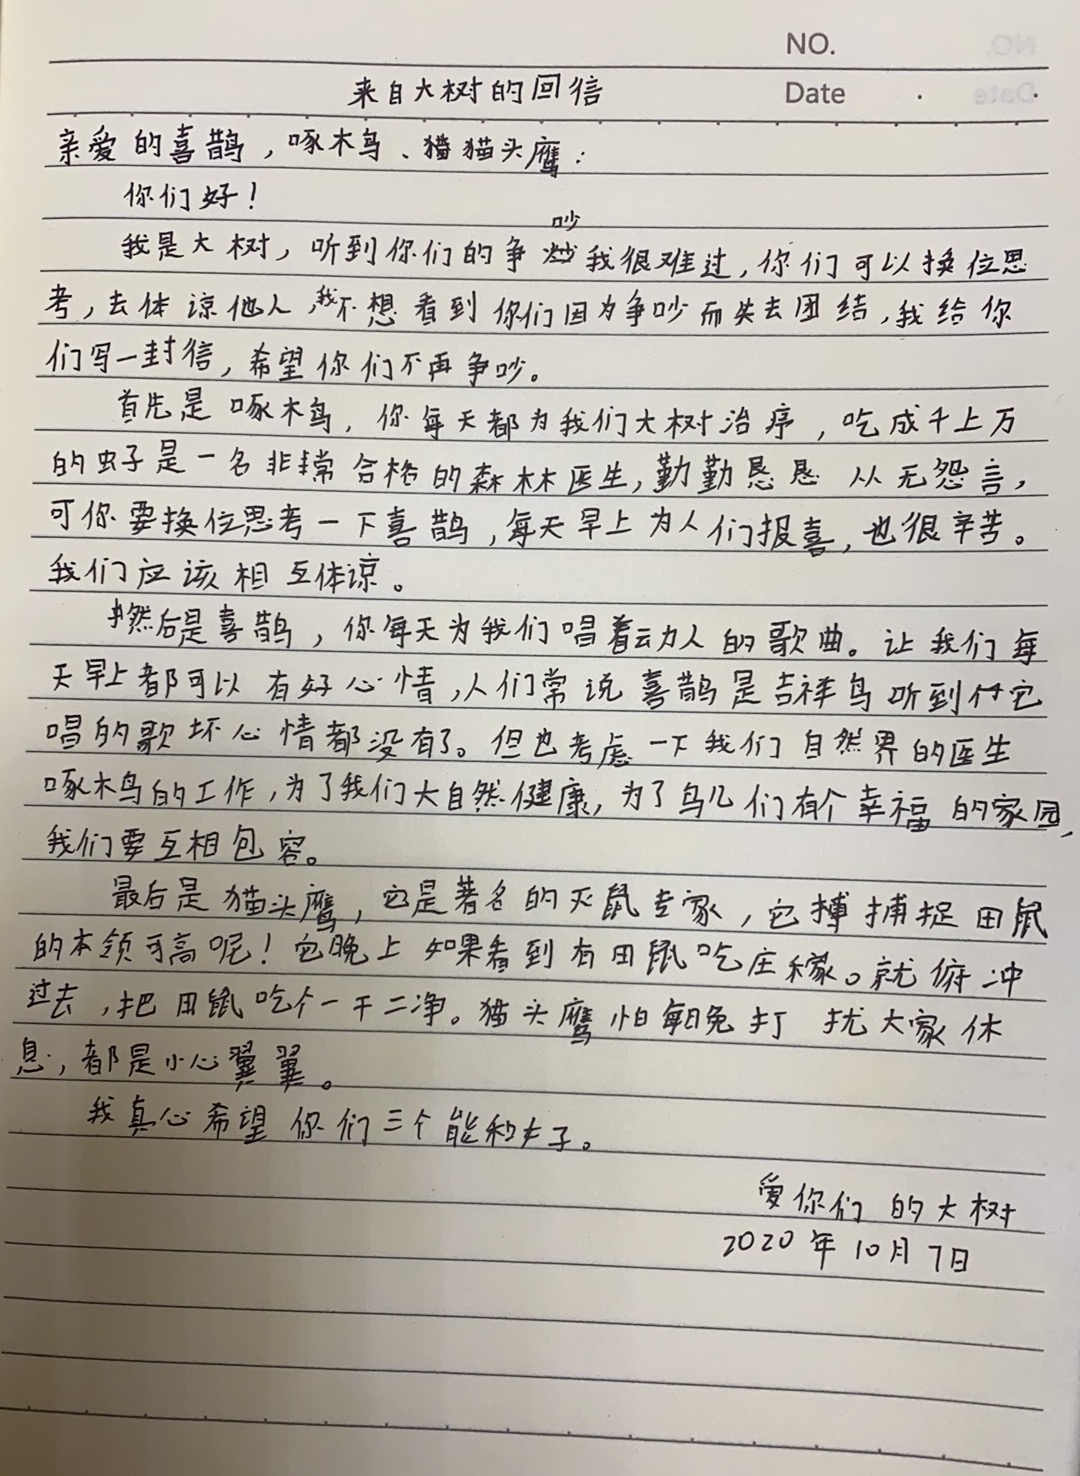 NO.
来自大树的回信
Date
亲爱的喜鹊，啄木鸟、猫头鹰：
你们好！
我是大树，听到你们的争吵我很难过，你们可以换位思
考，去体谅他人，我不想看到你们因为争吵而失去团结，我给你
们写一封信，希望你们不再争吵。
首先是啄木鸟，你每天都为我们大树治疗，吃成千上万
的虫子是一名非常合格的森林医生，勤勤恳恳从无怨言，
可你要换位思考一下喜鹊，每天早上为人们报喜，也很辛苦。
我们应该相互体谅。
然后是喜鹊，你每天为我们唱着动人的歌曲。让我们每
天早上都可以有好心情，人们常说喜鹊是吉祥鸟听到它
唱的歌坏心情都没有了。但也考虑一下我们自然界的医生
啄木鸟的工作，为了我们大自然健康，为了鸟儿们有个幸福的家园，
我们要互相包容。
最后是猫头鹰，它是著名的灭鼠专家，它捕捉田鼠
的本领可高呢！它晚上如果看到有田鼠吃庄稼。就俯冲
过去，把田鼠吃个一干二净。猫头鹰怕每晚打扰大家休
息，都是小心翼翼。
我真心希望你们三个能和好。
爱你们的大树
2020年10月7日